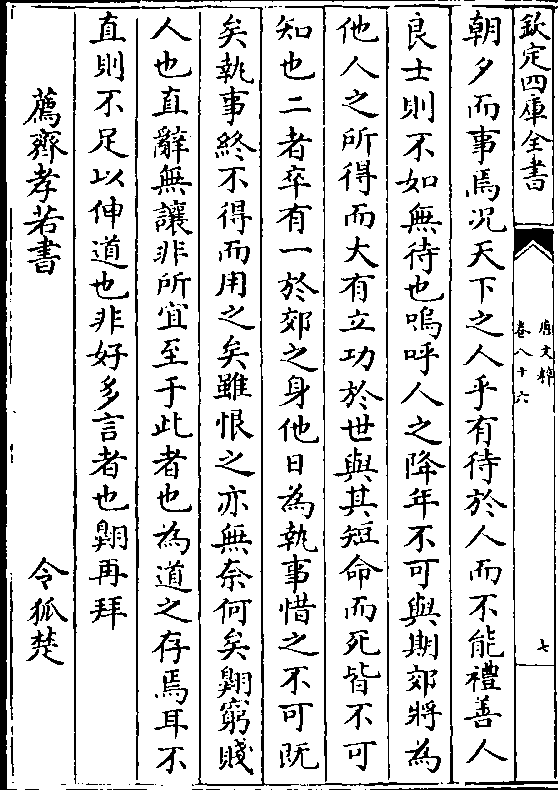 欽定四庫全書
唐文粹
卷八十六
七
朝夕而事焉况天下之人乎有待於人而不能禮善人
良士則不如無待也嗚呼人之降年不可與期郊將為
他人之所得而大有立功於世與其短命而死皆不可
知也二者卒有一於郊之身他日為執事惜之不可既
矣執事終不得而用之矣雖恨之亦無奈何矣翺窮賤
人也直辭無讓非所宜至于此者也為道之存焉耳不
直則不足以伸道也非好多言者也翺再拜
薦齊孝若書 令狐楚